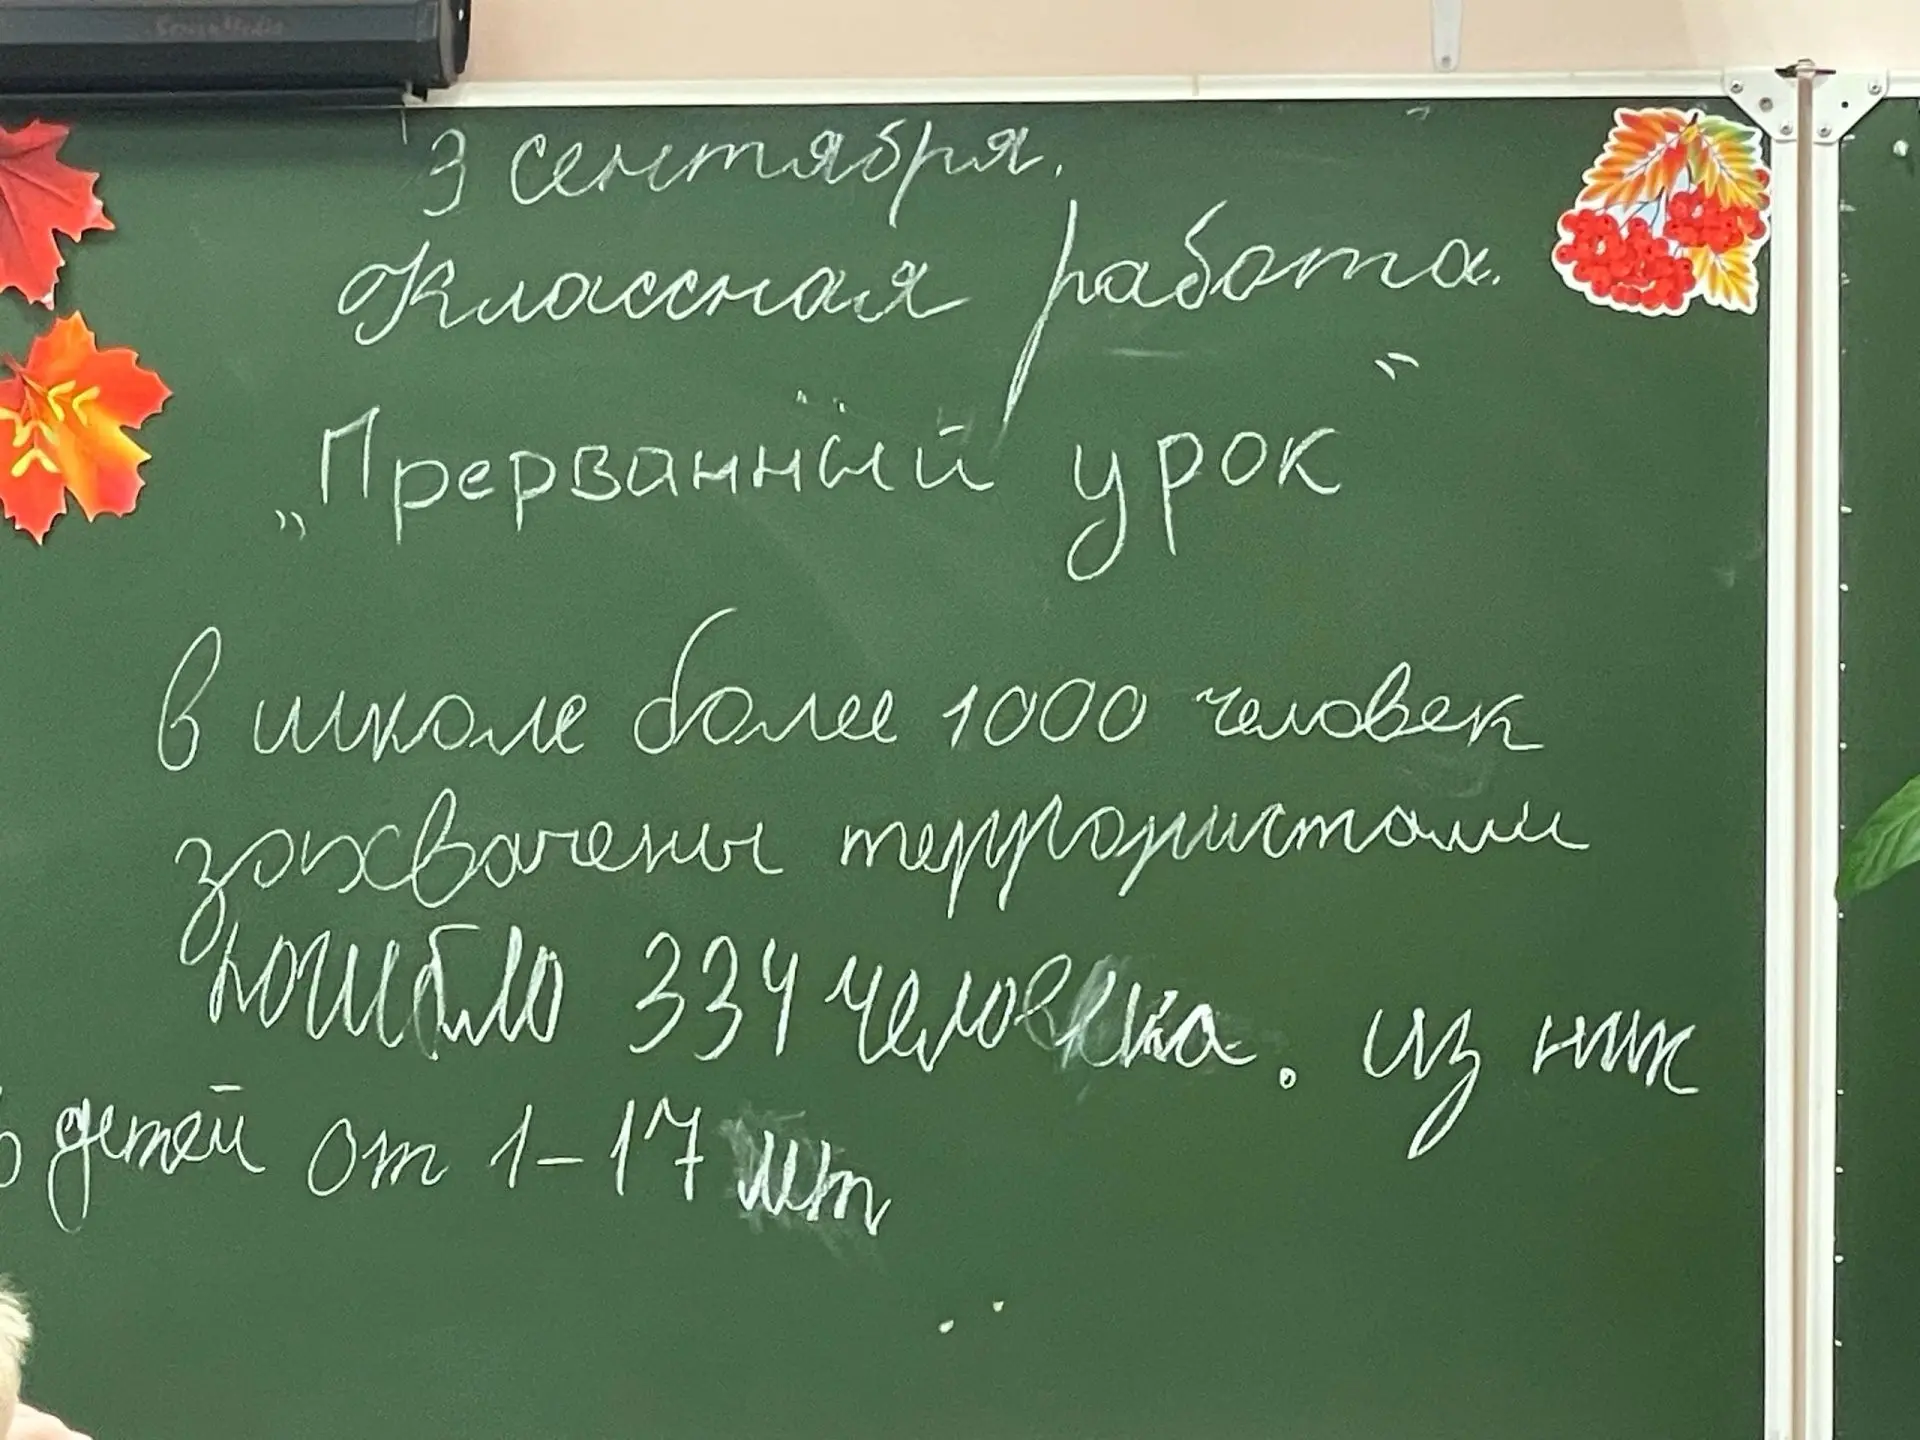 3 сентября.
Классная работа.
„Прерванный урок"
в школе более 1000 человек
захвачены террористами
погибло 334 человека. из них
детей от 1-17 лет